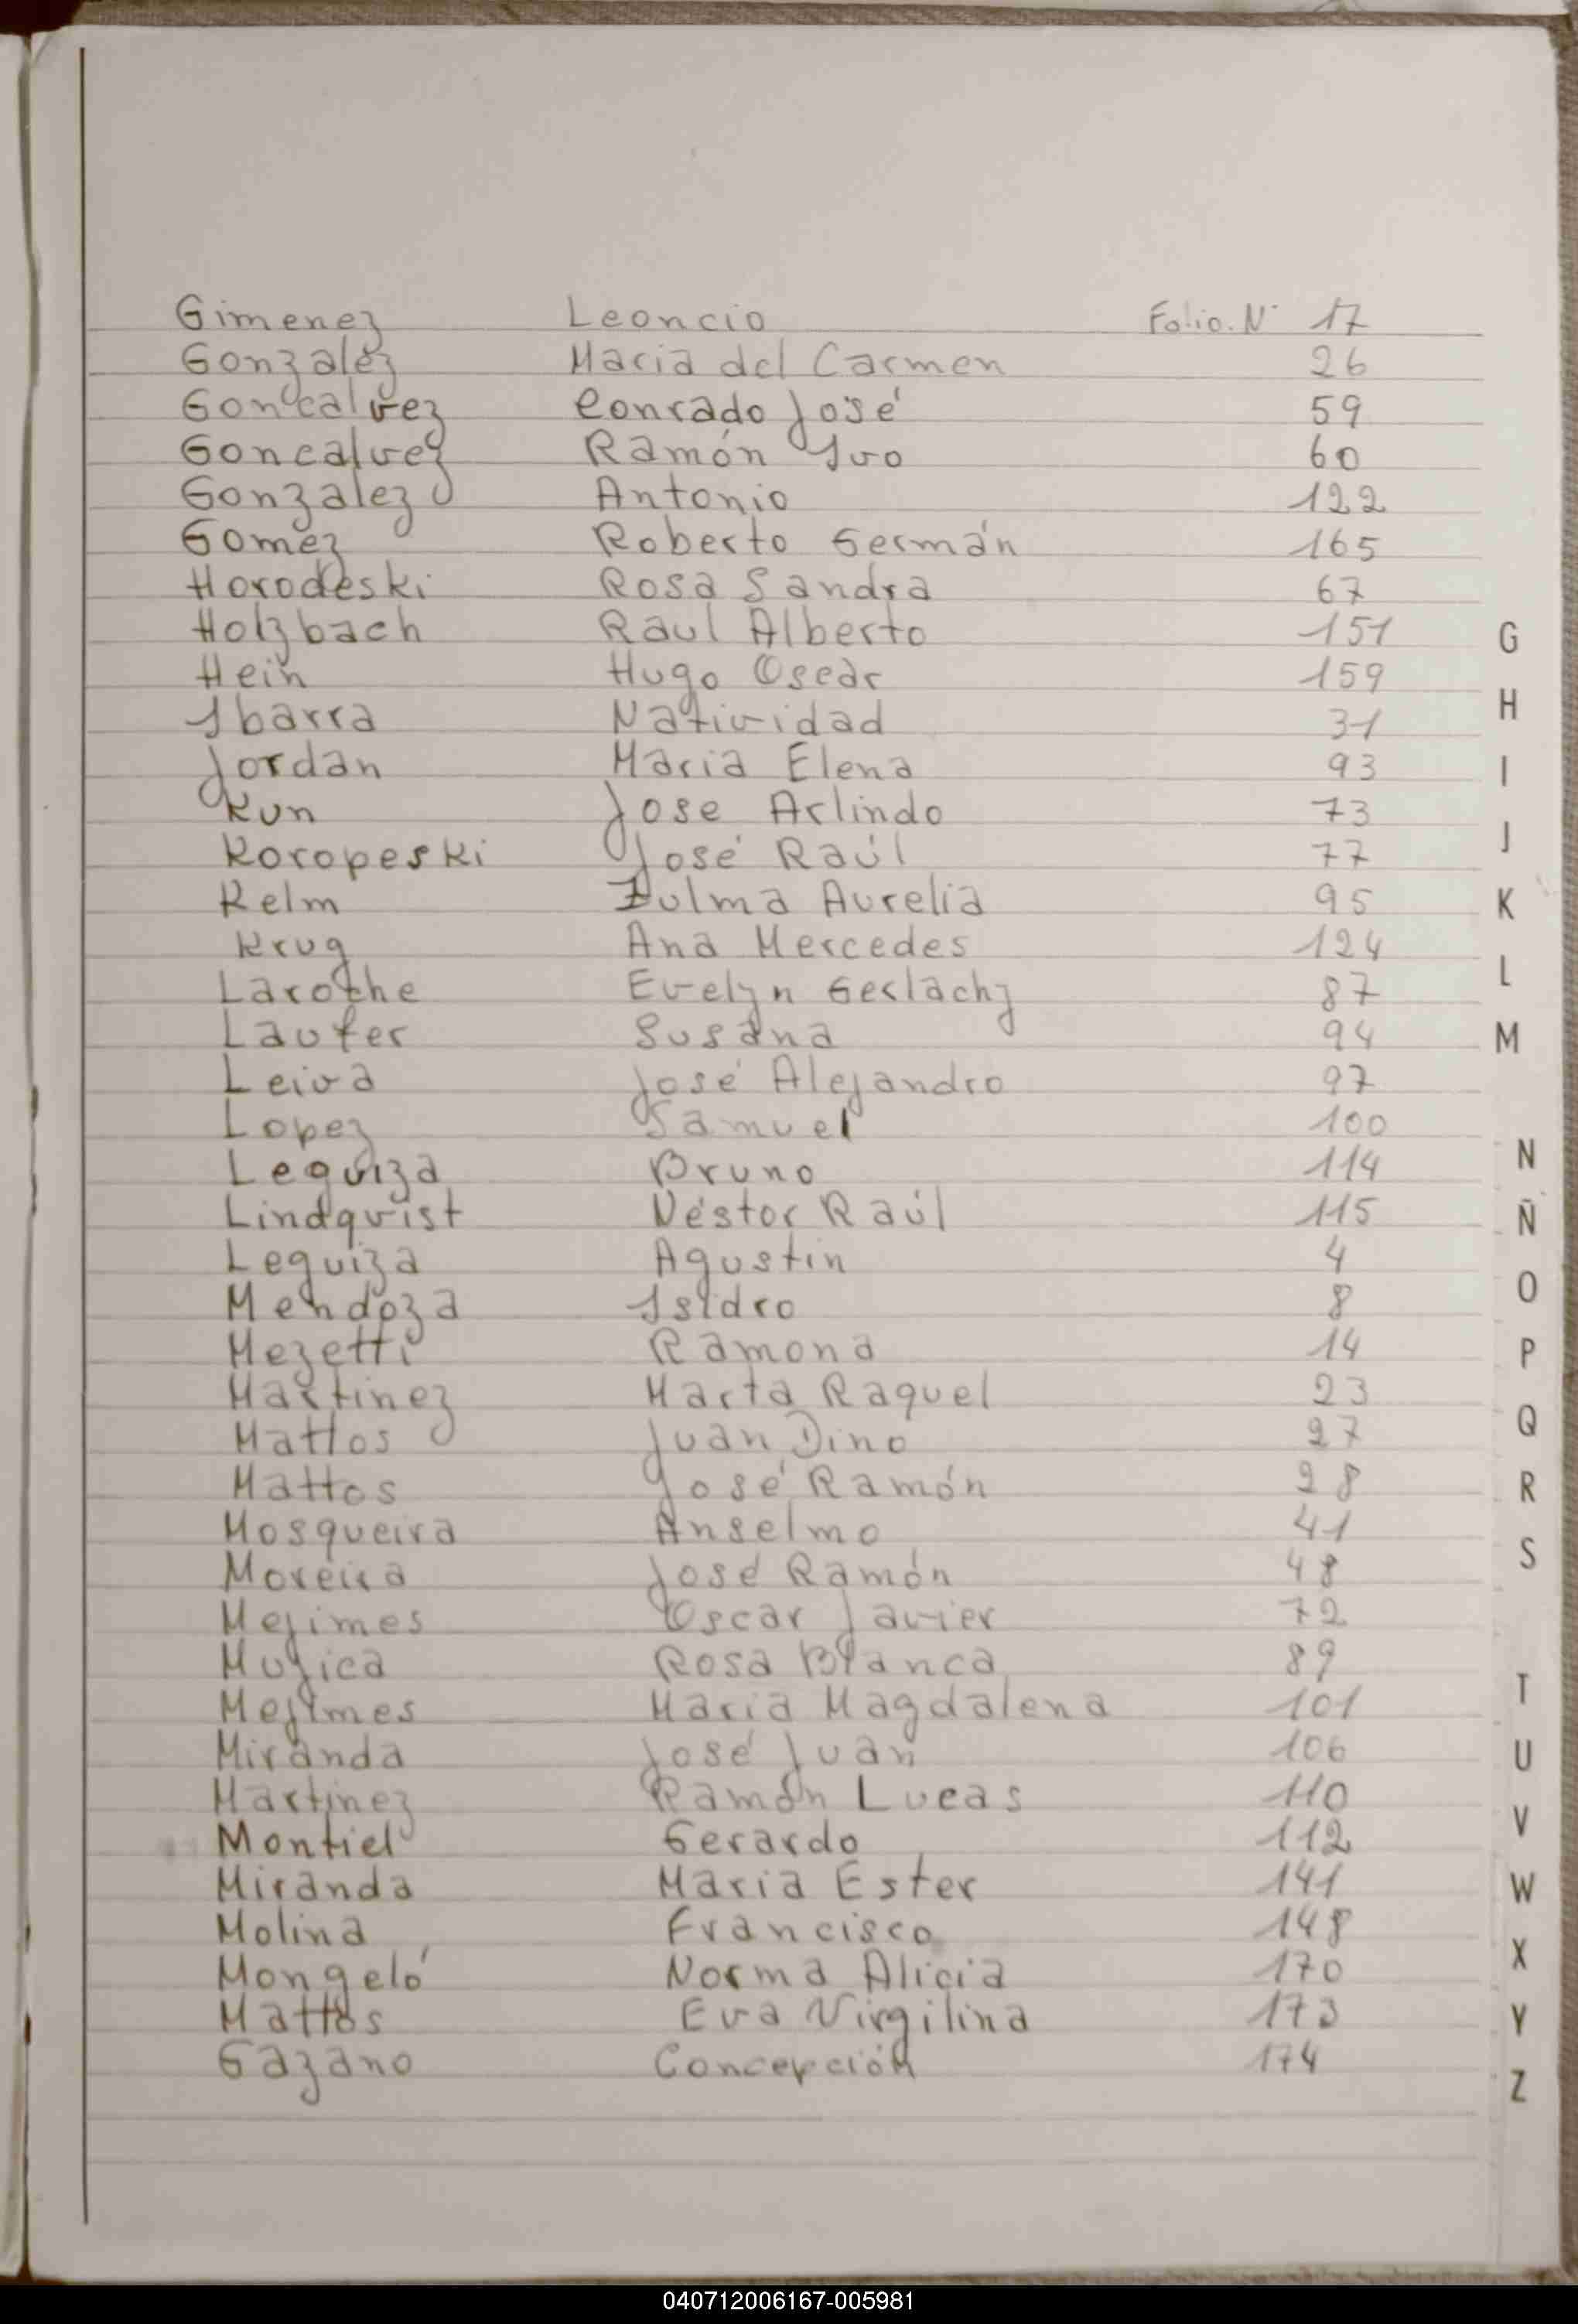 Gimenez Leoncio Folio. Nº 17
Gonzalez Maria del Carmen 26
Goncalvez Conrado José 59
Goncalvez Ramón Ivo 60
Gonzalez Antonio 122
Gomez Roberto Germán 165
Horodeski Rosa Sandra 67
Holzbach Raul Alberto 151
Hein Hugo Oscar 159
Ibarra Natividad 31
Jordan Maria Elena 93
Kun Jose Arlindo 73
Koropeski José Raúl 77
Kelm Zulma Aurelia 95
Krug Ana Mercedes 124
Laroche Evelyn Gerlach 87
Laufer Susana 94
Leiva José Alejandro 97
Lopez Samuel 100
Leguiza Bruno 114
Lindquist Néstor Raúl 115
Leguiza Agustin 4
Mendoza Isidro 8
Mezetti Ramona 14
Martinez Marta Raquel 23
Mattos Juan Dino 27
Mattos José Ramón 28
Mosqueira Anselmo 41
Moreira José Ramón 48
Mejimes Oscar Javier 72
Mujica Rosa Blanca 89
Mejimes Maria Magdalena 101
Miranda José Juan 106
Martinez Ramón Lucas 110
Montiel Gerardo 112
Miranda Maria Ester 141
Molina Francisco 148
Mongeló Norma Alicia 170
Mattos Eva Virgilina 173
Gazano Concepción 174
G
H
I
J
K
L
M
N
Ñ
O
P
Q
R
S
T
U
V
W
X
Y
Z
040712006167-005981